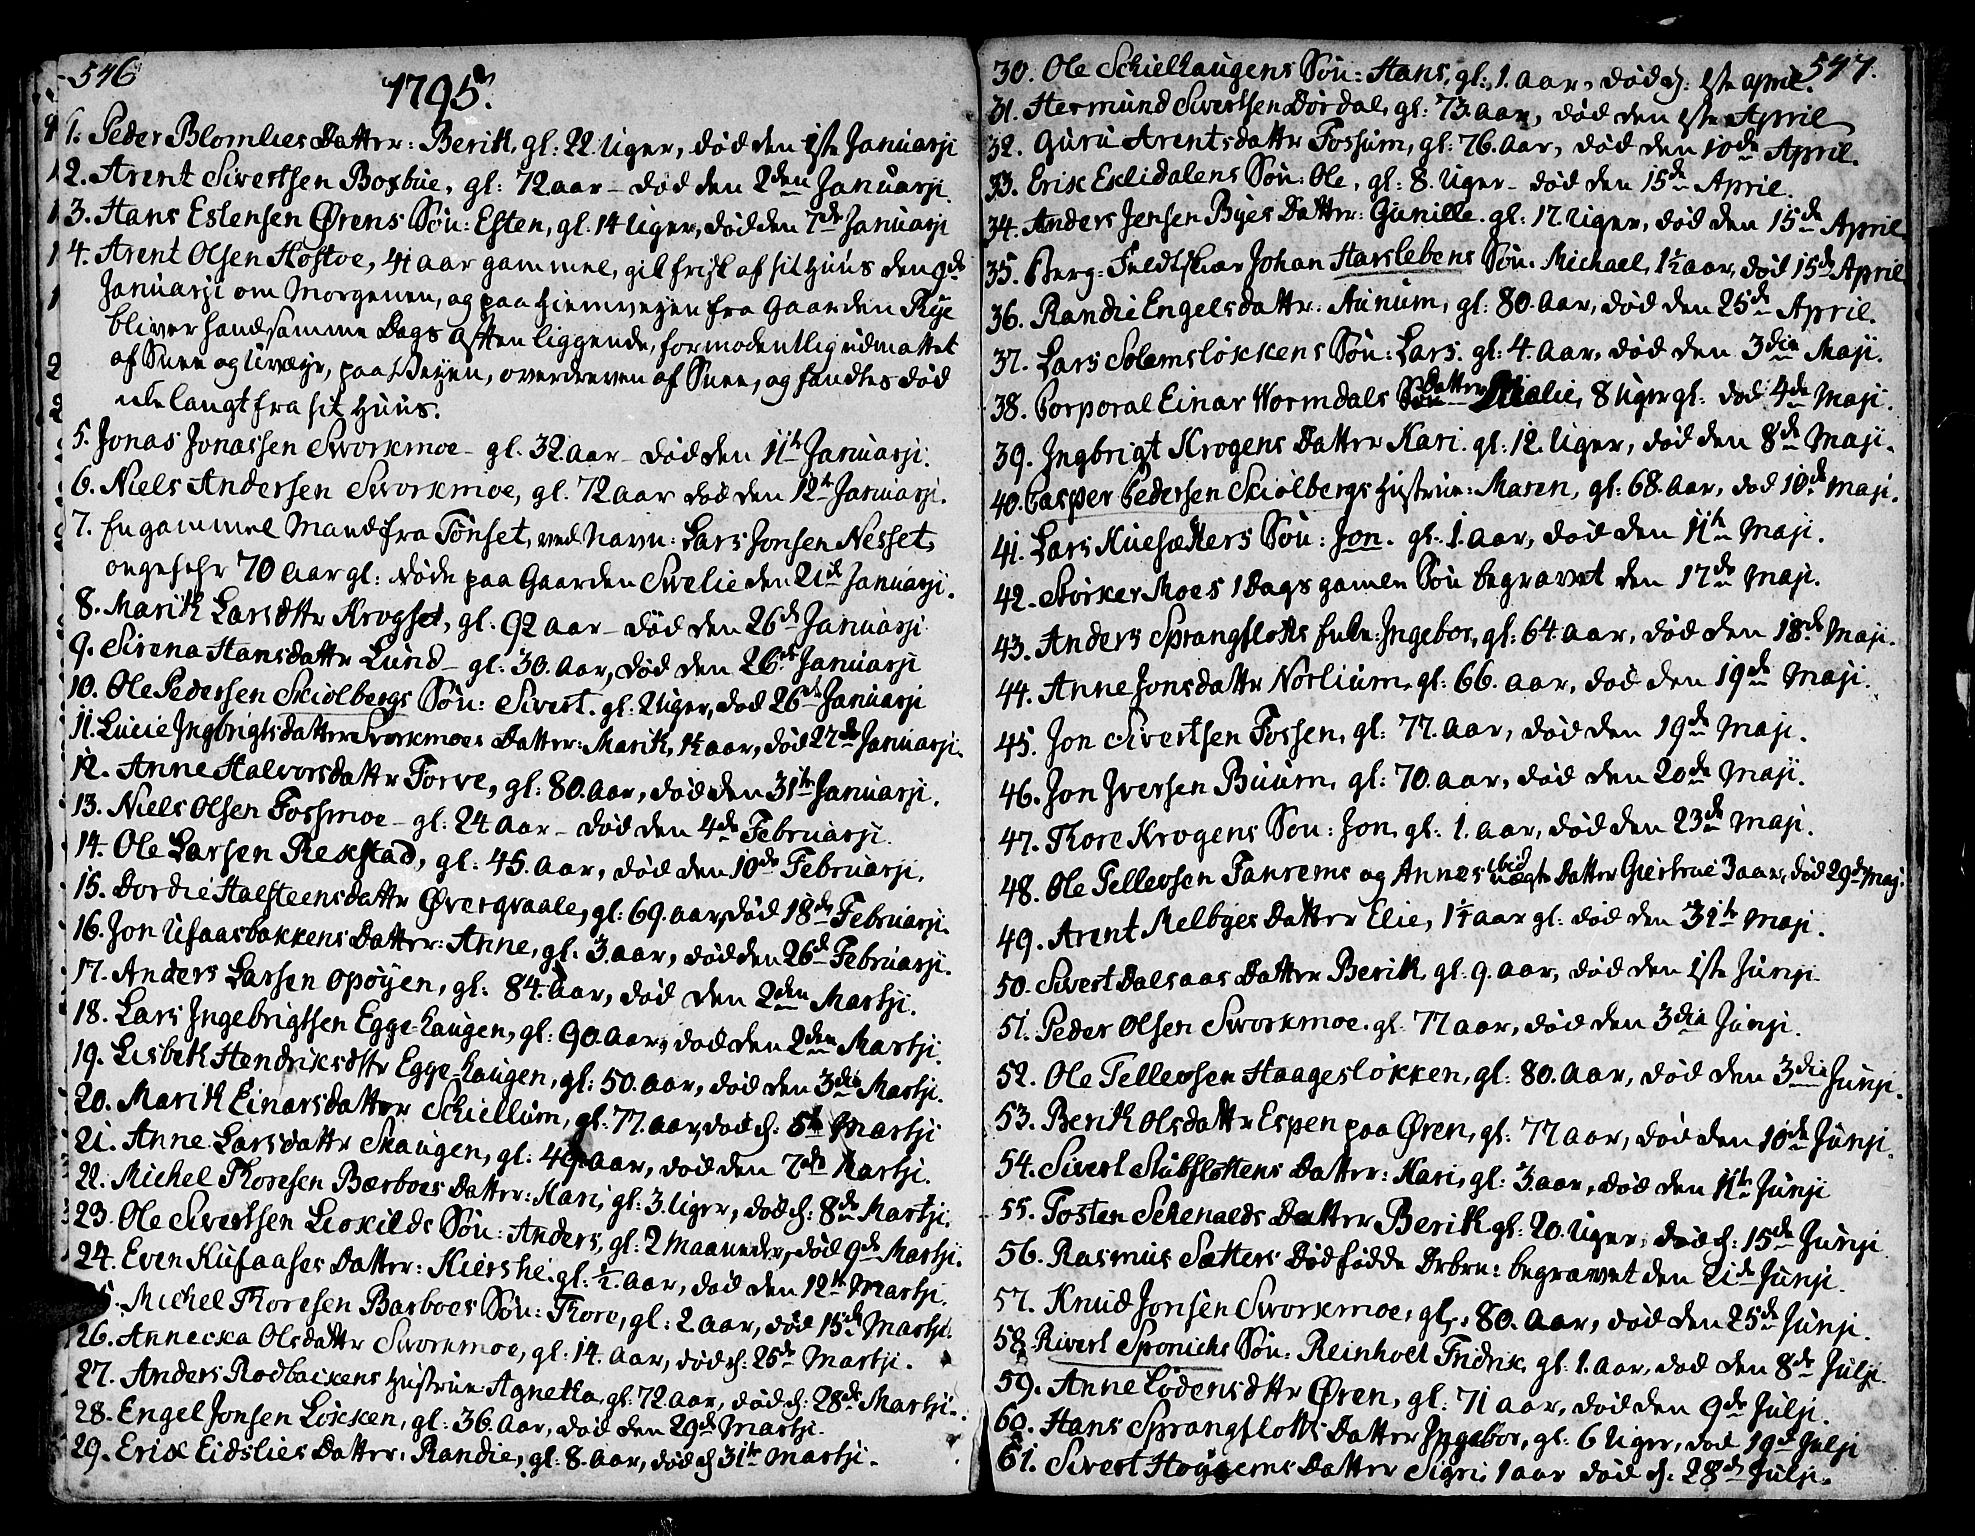 546
1795.
1. Peder Blomlies Datter: Berit, gl: 22 Uger, død den 1ste Januarji
2. Arent Sivertsen Bosbue, gl: 72 aar – død den 2den Januarji.
3. Hans Estensen Ørens Søn: Esten, gl: 14 Uger, død den 7de Januarji
4. Arent Olsen Hostoe, 41 aar gammel, gik frisk af sit Huus den 9de
Januarji om Morgenen, og paa Hiemveyen fra Gaarden Rye
bliver hand samme Dags Aften liggende, formodentlig udmattet
af Snee og Uveyr, paa Veyen, overdreven af Snee, og fandtes død
ikke langt fra sit Huus.
5. Jonas Jonassen Svorkmoe – gl: 32 aar – død den 11te Januarji.
6. Niels Andersen Svorkmoe, gl: 72 aar død den 12te Januarji.
7. En gammel Mand fra Tønset, ved Navn: Lars Jonsen Nesset,
ongefehr 70 aar gl: døde paa Gaarden Svelie den 21de Januarji.
8. Marit Larsdttr Krogset, gl: 92 aar – død den 26de Januarji
9. Sirena Hansdattr Lund – gl: 30. aar, død den 26de Januarji
10. Ole Pedersen Skiølbergs Søn: Sivert. gl: 2 Uger, død 26de Januarji
11. Lucie Ingbrigtsdatter Svorkmoes Datter: Marit, 1½ aar, død 27de Januarji.
12. Anne Halvorsdattr Torve, gl: 80. aar, død den 31te Januarji.
13. Niels Olsen Fossmoe – gl: 24 aar – død den 4de Februarji.
14. Ole Larsen Rekstad, gl: 45. aar, død den 10de Februarji.
15. Dordie Halsteensdattr Øvergvaale, gl: 69. aar, død 18de Februarji.
16. Jon Ufaasbakkens Datter: Anne, gl: 3. aar, død den 26de Februarji.
17. Anders Larsen Opøyen, gl: 84. aar, død den 2den Martji.
18. Lars Ingebrigtsen Egge-haugen, gl: 90. aar, død den 2den Martji.
19. Lisbeth Hendriksdttr Egge-haugen, gl: 50. aar, død den 3die Martji.
20. Marit Einarsdatter Schiellum, gl: 77. aar, død d: 5te Martji
21. Anne Larsdattr Skaugen, gl: 49. aar, død den 7de Martji.
22. Michel Thoresen Bærboes Datter: Kari, gl: 3. Uger, død d: 8de Martji.
23. Ole Sivertsen Liokilds Søn: Anders, gl: 2 Maaneder, død 9de Martji.
24. Even Kufaases Datter: Kiersti. gl: ½. aar, død den 12te Martji.
5. Michel Thoresen Bærboes Søn: Thore, gl: 2. aar, død 15de Martji.
26. Annecka Olsdattr Svorkmoe, gl: 14. aar, død d: 25de Martji.
27. Anders Rødbackens Hustrue: Agnetha, gl: 72 aar, død d: 28de Martji.
28. Engel Jonsen Løkken, gl: 36. aar, død den 29de Martji.
29. Erik Eidslies Datter: Randie, gl: 8. aar, død d: 31te Martji.
547.
30. Ole Schielhaugens Søn: Hans, gl: 1. aar, død d: 1ste april.
31. Hermund Sivertsen Dørdal, gl: 73. aar, død den 1ste April
32. Guru Arentsdattr Fossum, gl: 76. aar, død den 10de April.
33. Erik Eklidalens Søn: Ole, gl: 8. Uger – død den 15de April.
34. Anders Jensen Byes Datter: Gunille. gl: 17. Uger, død den 15de April.
35. Berg: Feldtskiær Johan Harslebens Søn. Michael, 1½ aar, død 15de April
36. Randie Engelsdattr: Aunum, gl: 80. aar, død den 25de April.
37. Lars Solemsløkkens Søn: Lars. gl: 4. aar, død den 3die Maji.
38. Corporal Einar Wormdals Datter, 8 Uger gl: død 4de Maji.
39. Ingbrigt Krogens Datter Kari. gl: 12. Uger, død den 8de Maji.
40. Casper Pedersen Skiølbergs Hustrue: Maren, gl: 68. aar, død 10de Maji.
41. Lars Kuesætters Søn: Jon. gl: 1. aar, død den 11te Maji.
42. Størker Moes 1 Dags gamle Søn begravet den 17de Maji.
43. Anders Sprangslotts Enke: Ingebor, gl: 64. aar, død den 18de Maji.
44. Anne Jonsdattr Norlium, gl: 66. aar, død den 19de Maji.
45. Jon Sivertsen Fossen, gl: 77. aar, død den 19de Maji.
46. Jon Iversen Buum, gl: 70. aar, død den 20de Maji.
47. Thore Krogens Søn: Jon, gl: 1. aar, død den 23de Maji.
48. Ole Tellevsen Fanrems og Annes uægte Datter Giertrue 3 aar, død 29de Maj.
49. Arent Melbyes Datter Elie, 1½ aar gl: død den 31te Maji.
50. Sivert Dalsaas Datter Berit, gl: 9. aar, død den 1ste Junji
51. Peder Olsen Svorkmoe. gl: 77 aar, død den 3die Junji.
52. Ole Tellevsen Haagesløkken, gl: 80. aar, død den 3die Junji.
53. Berit Olsdattr Espen paa Øren, gl: 77 aar, død den 10de Junji.
54. Sivert Stubsløttens Datter: Kari, gl: 3. aar, død den 11te Junji
55. Tosten Schenalds Datter Berit gl: 20. Uger, død d: 15de Junji
56. Rasmus Sætters Dødfødde Drbrn: begravet den 21de Junji.
57. Knud Jonsen Svorkmoe, gl: 80. aar, død den 25de Junji.
58. Rivert Sponichs Søn: Reinholt Fridrik, gl: 1. aar, død den 8de Julji.
59. Anne Lodensdttr Øren, gl: 71 aar, død den 9de Julji.
60. Hans Sprangslotts Datter Ingebor, gl: 6 Uger, død 19de Julji
61. Sivert Hoyems Datter Sigri, 1 aar død d: 28de Julji.